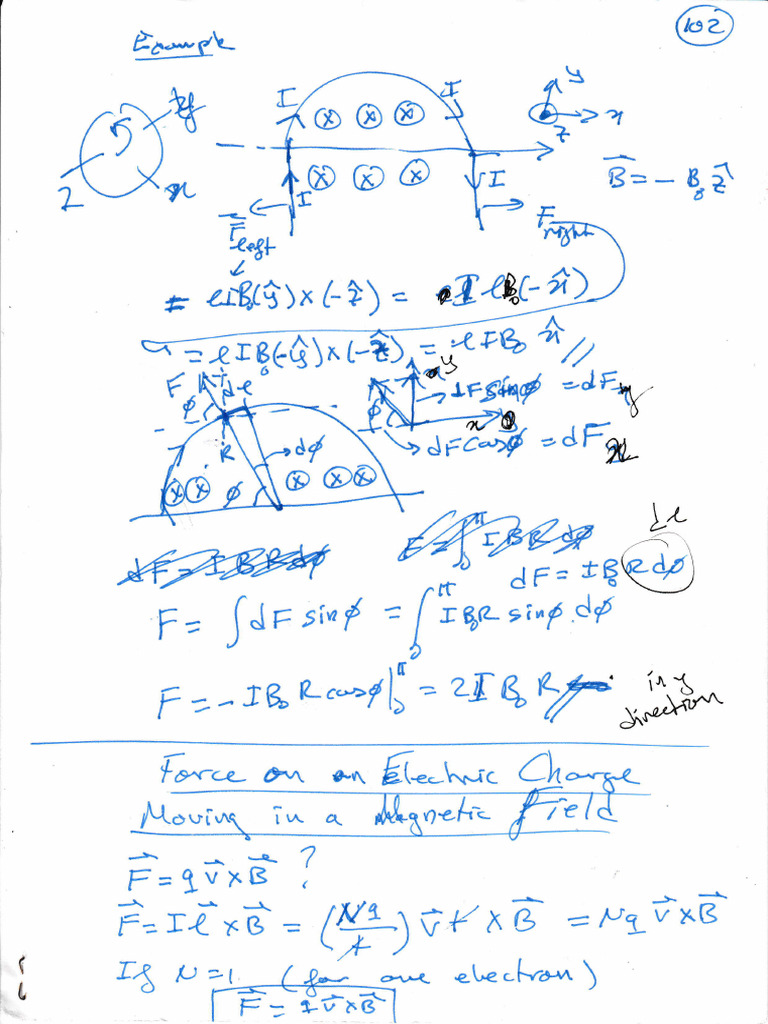 102
Example
I I
y
x
z
ⓧ ⓧ ⓧ
y
z x
ⓧ ⓧ ⓧ I I
B⃗ = - B₀ ẑ
F⃗left
Fright
= lIB₀(ŷ)×(-ẑ) = I l B₀(-x̂)
= l I B₀(-ŷ)×(-ẑ) = l I B₀ x̂ //
F dl
φ
y
φ
x
dF sinφ = dFy
dF cosφ = dFx
R dφ
φ
ⓧ ⓧ ⓧ ⓧ ⓧ
dl
dF = I B R dφ
F = ∫₀^π I B R dφ
dF = I B₀ R dφ
F = ∫ dF sinφ = ∫₀^π I B₀R sinφ dφ
F = - I B₀ R cosφ |₀^π = 2I B₀ R
in y
direction
Force on an Electric Charge
Moving in a Magnetic Field
F⃗ = q v⃗ × B⃗ ?
F⃗ = I l⃗ × B⃗ = (Nq/t) v⃗ t × B⃗ = Nq v⃗ × B⃗
If N = 1 (for one electron)
F⃗ = q v⃗ × B⃗